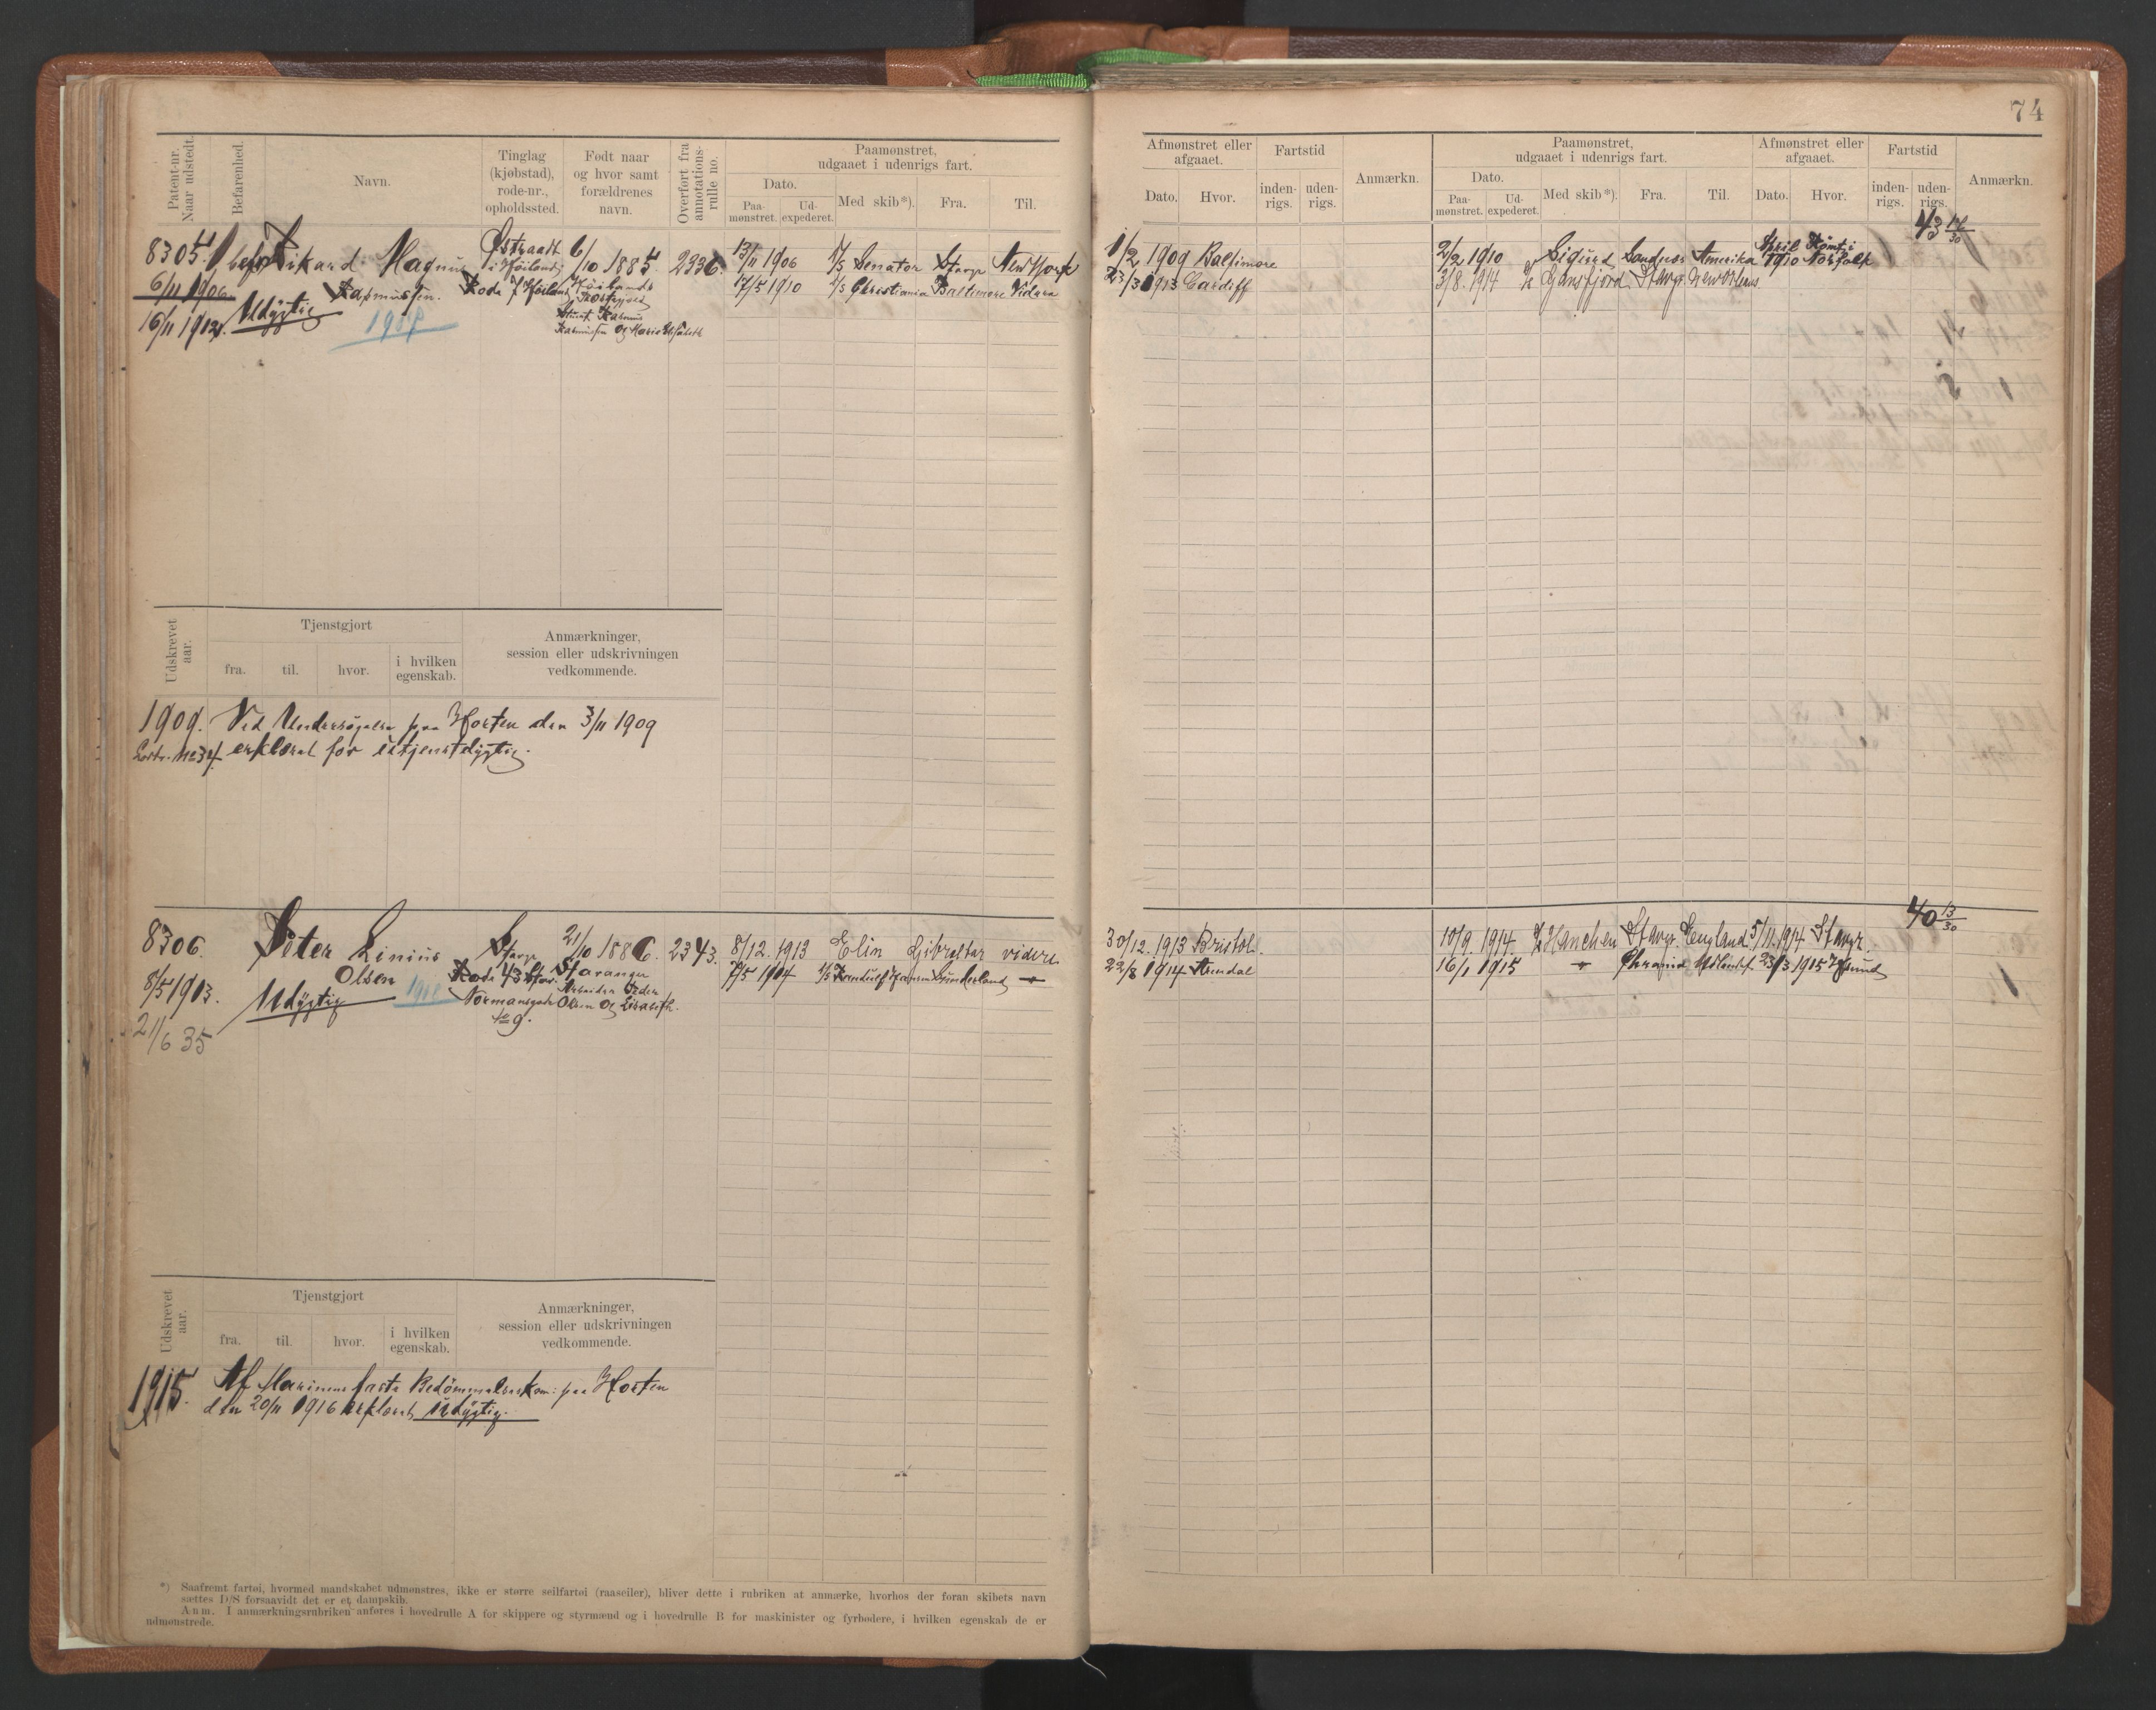 74
Patent-nr. Naar udstedt.
Befarenhed.
Navn.
Tinglag (kjøbstad), rode-nr., opholdssted.
Født naar og hvor samt forældrenes navn.
Overført fra annotationsrulle no.
Paamønstret, udgaaet i udenrigs fart.
Dato.
Paamønstret.
Udexpederet.
Med skib*).
Fra.
Til.
Afmønstret eller afgaaet.
Dato.
Hvor.
Fartstid
indenrigs.
udenrigs.
Anmærkn.
Paamønstret, udgaaet i udenrigs fart.
Dato.
Paamønstret.
Udexpederet.
Med skib*).
Fra.
Til.
Afmønstret eller afgaaet.
Dato.
Hvor.
Fartstid
indenrigs.
udenrigs.
Anmærkn.
8305
6/11 1906
16/11 1912
Rikard Magnus
Rasmussen.
Udygtig
Østraadt
i Høiland
Rode 7 Høiland
6/10 1885
2336.
13/11 1906 Senator Stavgr New York
17/5 1910 Christiania Baltimore Videre
1/2 1909 Baltimore
23/3 1913 Cardiff
2/2 1910 Sigurd Sandnes Amerika April 1910 Norfolk
3/8 1914 Stavgr. New Orleans
43
Udskrevet aar.
Tjenstgjort
fra.
til.
hvor.
i hvilken egenskab.
Anmærkninger, session eller udskrivningen vedkommende.
1909. Ved Undersøgelse paa Horten den 3/11 1909
erklæret for utjenstdygtig.
8306.
8/5 1913.
21/6 35
Peter Linius
Olsen
Udygtig
Stavgr
Rode 43 Stav.
Normansgade
No 9.
21/10 1886.
Stavanger
Arbeider Peder
Olsen og Lisabeth.
2343.
8/12. 1913 Elin Gibraltar videre
7/5 1914 Sunderland
30/12. 1913 Bristol.
22/8 1914 Arendal
10/9. 1914. Hanchen Stavgr. England 5/11. 1914 Stavgr.
16/1 1915 Chrania 23/3 1915
40 13/30
Udskrevet aar.
Tjenstgjort
fra.
til.
hvor.
i hvilken egenskab.
Anmærkninger, session eller udskrivningen vedkommende.
1915. Af Marinens faste Bedømmelseskom: paa Horten
den 20/11 1916 erklæret Udygtig.
*) Saafremt fartøi, hvormed mandskabet udmønstres, ikke er større seilfartøi (raaseiler), bliver dette i rubriken at anmærke, hvorhos der foran skibets navn
sættes D/S forsaavidt det er et dampskib.
Anm. I anmærkningsrubriken anføres i hovedrulle A for skippere og styrmænd og i hovedrulle B for maskinister og fyrbødere, i hvilken egenskab de er
udmønstrede.